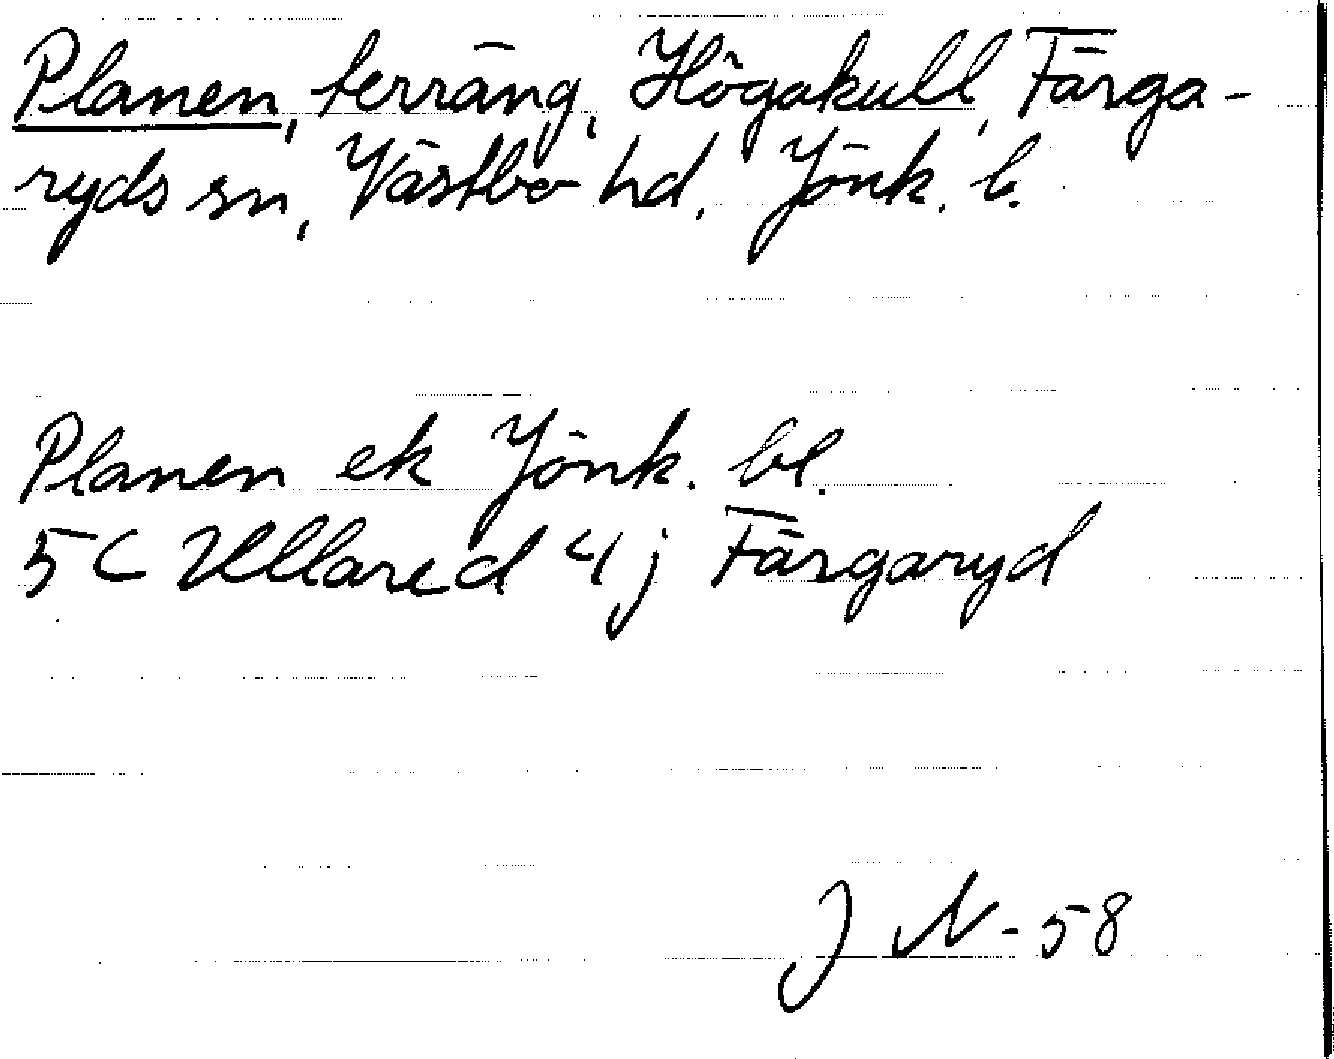 Planen, terräng, Högakull, Färga-
ryds sn, Västbo hd, Jönk. l.
Planen ek Jönk. bl.
5C Ullared 4j Färgaryd
J N-58